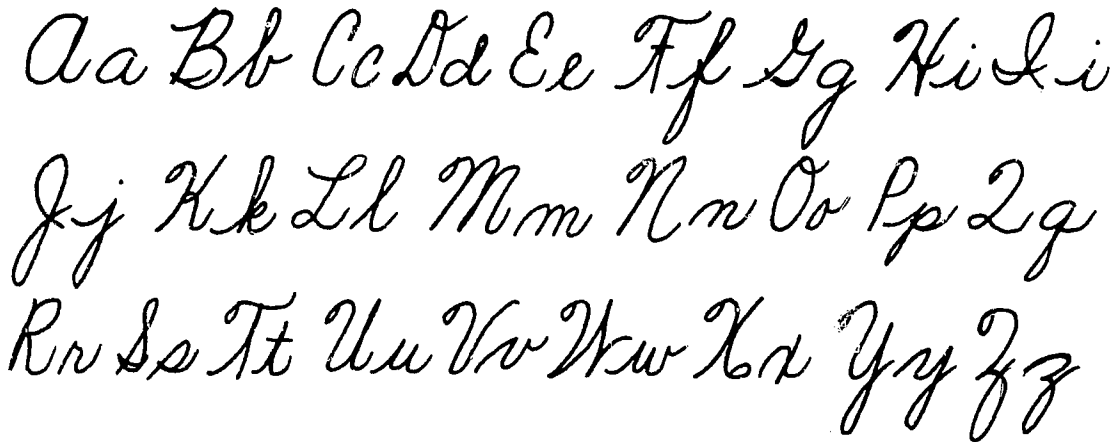 Aa Bb Cc Dd Ee Ff Gg Hi Ii
Jj Kk Ll Mm Nn Oo Pp Qq
Rr Ss Tt Uu Vv Ww Xx Yy Zz